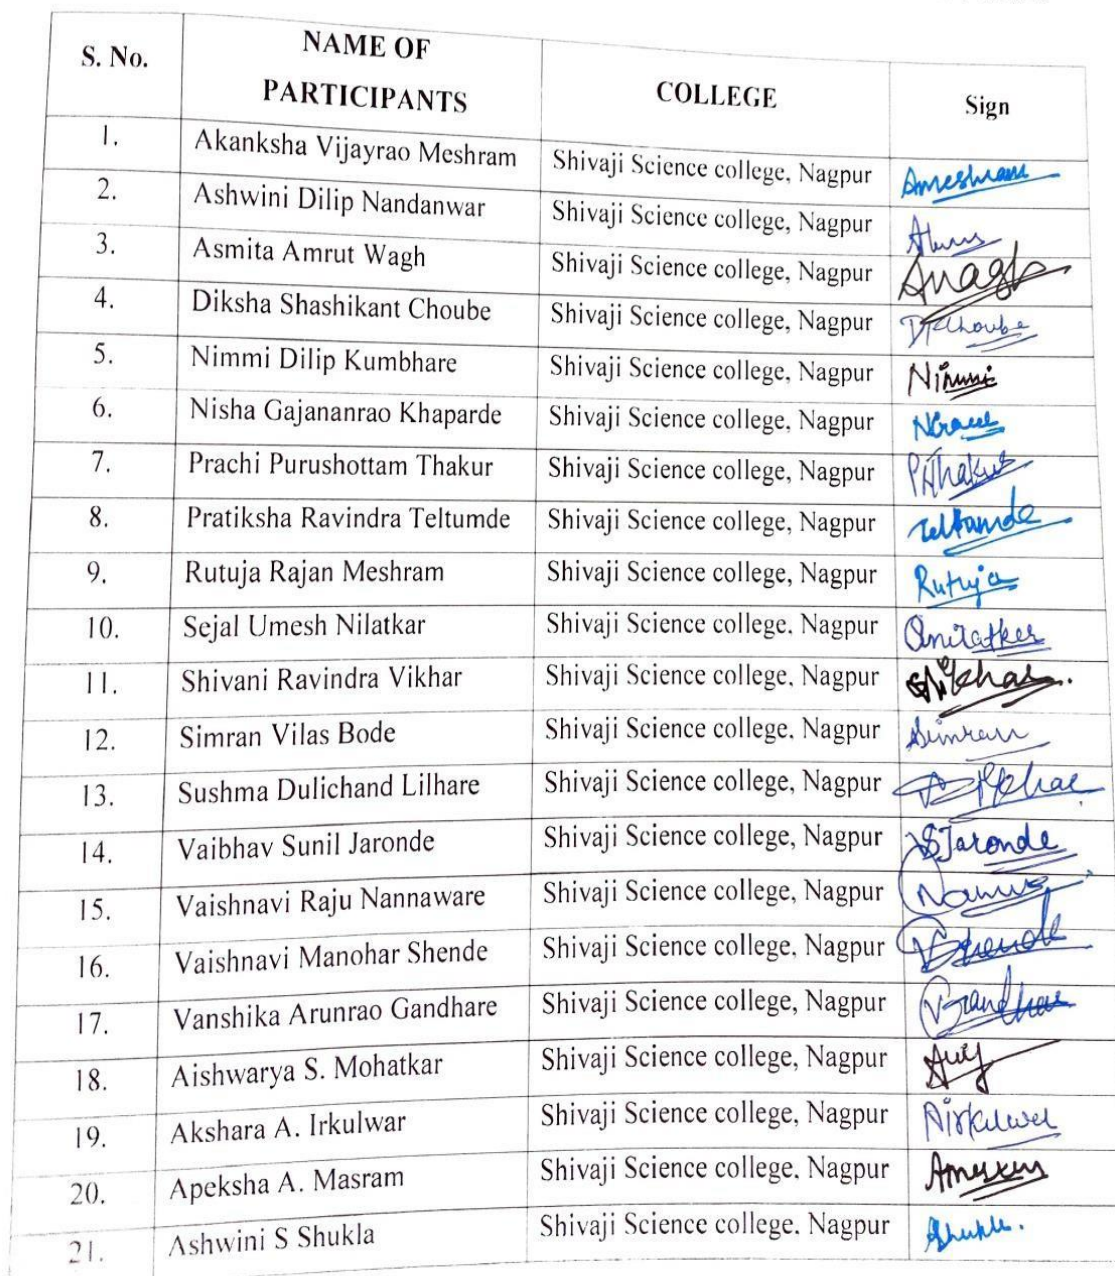 S. No. NAME OF PARTICIPANTS COLLEGE Sign
1. Akanksha Vijayrao Meshram Shivaji Science college, Nagpur Ameshram
2. Ashwini Dilip Nandanwar Shivaji Science college, Nagpur
3. Asmita Amrut Wagh Shivaji Science college, Nagpur
4. Diksha Shashikant Choube Shivaji Science college, Nagpur
5. Nimmi Dilip Kumbhare Shivaji Science college, Nagpur Nimmi
6. Nisha Gajananrao Khaparde Shivaji Science college, Nagpur
7. Prachi Purushottam Thakur Shivaji Science college, Nagpur
8. Pratiksha Ravindra Teltumde Shivaji Science college, Nagpur
9. Rutuja Rajan Meshram Shivaji Science college, Nagpur Rutuja
10. Sejal Umesh Nilatkar Shivaji Science college, Nagpur
11. Shivani Ravindra Vikhar Shivaji Science college, Nagpur
12. Simran Vilas Bode Shivaji Science college, Nagpur Simran
13. Sushma Dulichand Lilhare Shivaji Science college, Nagpur
14. Vaibhav Sunil Jaronde Shivaji Science college, Nagpur VSJaronde
15. Vaishnavi Raju Nannaware Shivaji Science college, Nagpur
16. Vaishnavi Manohar Shende Shivaji Science college, Nagpur
17. Vanshika Arunrao Gandhare Shivaji Science college, Nagpur
18. Aishwarya S. Mohatkar Shivaji Science college, Nagpur
19. Akshara A. Irkulwar Shivaji Science college, Nagpur
20. Apeksha A. Masram Shivaji Science college, Nagpur
21. Ashwini S Shukla Shivaji Science college, Nagpur